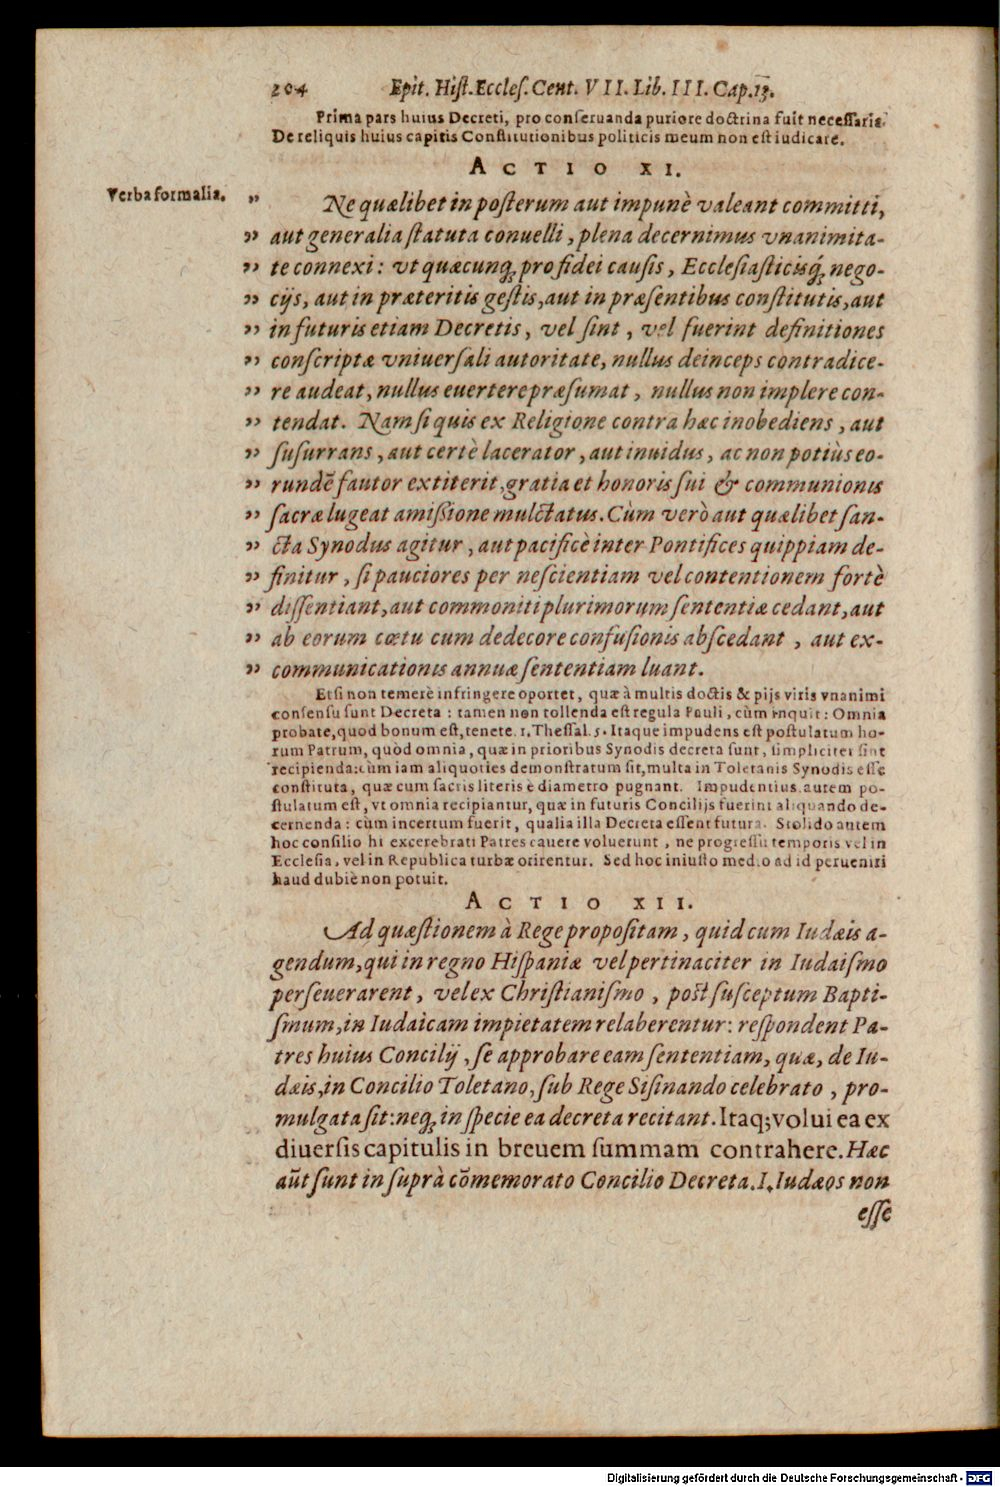 204 Epit. Hist. Eccles. Cent. VII. Lib. III. Cap. 13.
Prima pars huius Decreti, pro conseruanda puriore doctrina fuit necessaria.
De reliquis huius capitis Constitutionibus politicis meum non est iudicare.
ACTIO XI.
Verba formalia.
„ Ne quælibet in posterum aut impunè valeant committi,
„ aut generalia statuta conuelli, plena decernimus vnanimita-
„ te connexi: vt quæcunq; pro fidei causis, Ecclesiasticisq́; nego-
„ cijs, aut in præteritis gestis, aut in præsentibus constitutis, aut
„ in futuris etiam Decretis, vel sint, vel fuerint definitiones
„ conscriptæ vniuersali autoritate, nullus deinceps contradice-
„ re audeat, nullus euertere præsumat, nullus non implere con-
„ tendat. Nam si quis ex Religione contra hæc inobediens, aut
„ susurrans, aut certè lacerator, aut inuidus, ac non potiùs eo-
„ rundē fautor extiterit, gratia et honoris sui & communionis
„ sacræ lugeat amißione mulctatus. Cùm verò aut quælibet san-
„ cta Synodus agitur, aut pacificè inter Pontifices quippiam de-
„ finitur, si pauciores per nescientiam vel contentionem fortè
„ dissentiant, aut commoniti plurimorum sententiæ cedant, aut
„ ab eorum cœtu cum dedecore confusionis abscedant, aut ex-
„ communicationis annuæ sententiam luant.
Etsi non temerè infringere oportet, quæ à multis doctis & pijs viris vnanimi
consensu sunt Decreta: tamen non tollenda est regula Pauli, cùm inquit: Omnia
probate, quod bonum est, tenete. 1. Thessal. 5. Itaque impudens est postulatum ho-
rum Patrum, quòd omnia, quæ in prioribus Synodis decreta sunt, simpliciter sint
recipienda: cùm iam aliquoties demonstratum sit, multa in Toletanis Synodis esse
constituta, quæ cum sacris literis è diametro pugnant. Impudentius autem po-
stulatum est, vt omnia recipiantur, quæ in futuris Concilijs fuerint aliquando de-
cernenda: cùm incertum fuerit, qualia illa Decreta essent futura. Stolido autem
hoc consilio hi excerebrati Patres cauere voluerunt, ne progressu temporis vel in
Ecclesia, vel in Republica turbæ orirentur. Sed hoc iniusto medio ad id perueniri
haud dubiè non potuit.
ACTIO XII.
Ad quæstionem à Rege propositam, quid cum Iudæis a-
gendum, qui in regno Hispaniæ vel pertinaciter in Iudaismo
perseuerarent, vel ex Christianismo, post susceptum Bapti-
smum, in Iudaicam impietatem relaberentur: respondent Pa-
tres huius Concilij, se approbare eam sententiam, quæ, de Iu-
dæis, in Concilio Toletano, sub Rege Sisinando celebrato, pro-
mulgata sit: neq; in specie ea decreta recitant. Itaq; volui ea ex
diuersis capitulis in breuem summam contrahere. Hæc
aūt sunt in suprà cōmemorato Concilio Decreta. I. Iudæos non
esse
Digitalisierung gefördert durch die Deutsche Forschungsgemeinschaft - DFG